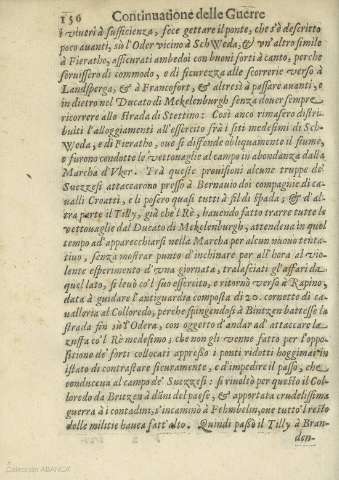 156 Continuatione delle Guerre
i viueri à sufficienza, fece gettare il ponte, che s'è descritto
poco auanti, sù l'Oder vicino à SchWeda, & vn'altro simile
à Fieratho, assicurati ambedoi con buoni forti à canto, perche
fornissero di commodo, e di sicurezza alle scorrerie verso à
Landsperga, & à Francofort, & altresì à passare auanti, e
in dietro nel Ducato di Mekelenburgh senza douer sempre
ricorrere allo strada di Stettino: Così anco rimasero distri-
buiti l'alloggiamenti all'essercito frà i siti medesimi di Sch-
Weda, e di Fieratho, oue si diffonde obliquamente il fiume,
e furono condotte le vettouaglie al campo in abondanza dalla
Marcha d'Vker. Trà queste prouisioni alcune truppe de'
Suezzesi attaccarono presso à Bernauio doi compagnie di ca-
ualli Croatti, e li posero quasi tutti à fil di spada, & d'al-
tra parte il Tilly, già che'l Rè, hauendo fatto trarre tutte le
vettouaglie dal Ducato di Mekelenburgh, attendeua in quel
tempo ad'apparecchiarsi nella Marcha per alcun nuouo tenta-
tiuo, senza mostrar punto d'inchinare per all'hora al vio-
lente esperimento d'vna giornata, tralasciati gl'affari da
quel lato, si leuò co'l suo essercito, e ritornò verso à Rapino,
data à guidare l'antiguardia composta di 20. cornette di ca-
ualleria al Colloredo, perche spingendosi à Bintzen battesse la
strada fin sù l'Odera, con oggetto d'andar ad'attaccare la
zuffa co'l Rè medesimo; che non gli venne fatto per l'oppo-
sitione de' forti collocati appresso i ponti ridotti hoggimai in
istato di contrastare sicuramente, e d'impedire il passo, che
conduceua al campo de' Suezzesi: si riuoltò per questo il Col-
loredo da Britzen à dãni del paese, & apportata crudelissima
guerra à i contadini, s'incaminò à Fehmbelin, oue tutto'l resto
delle militie hauea fatt'alto. Quindi passò il Tilly à Bran-
den-
Colección ABANCA